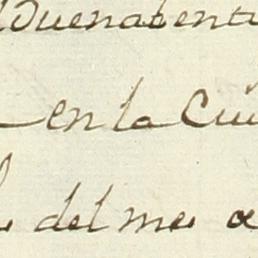 Buenabent
en la Ciu
del mes de